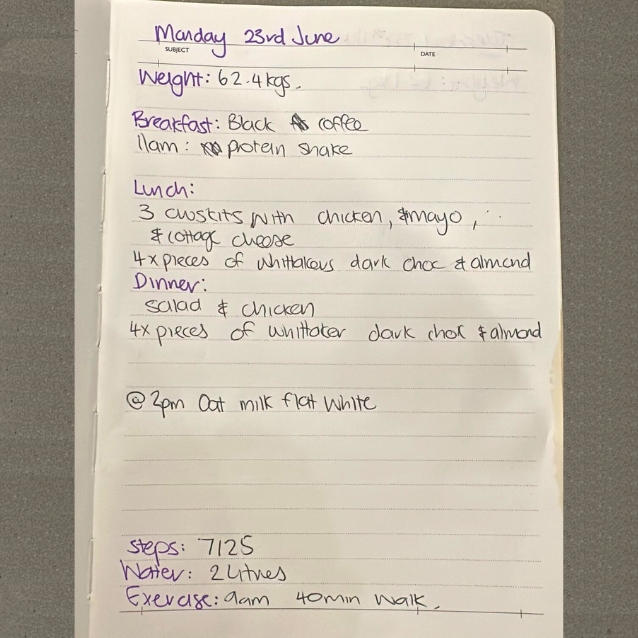 Monday 23rd June
SUBJECT
DATE
Weight: 62.4kgs.
Breakfast: Black coffee
11am: protein shake
Lunch:
3 cuskits with chicken, & mayo,
& cottag cheese
4x pieces of Whittakers dark choc & almond
Dinner:
Salad & chicken
4x pieces of Whittaker dark choc & almond
@ 2pm Oat milk flat white
Steps: 7125
Water: 2 Litres
Exercise: 9am 40min walk.